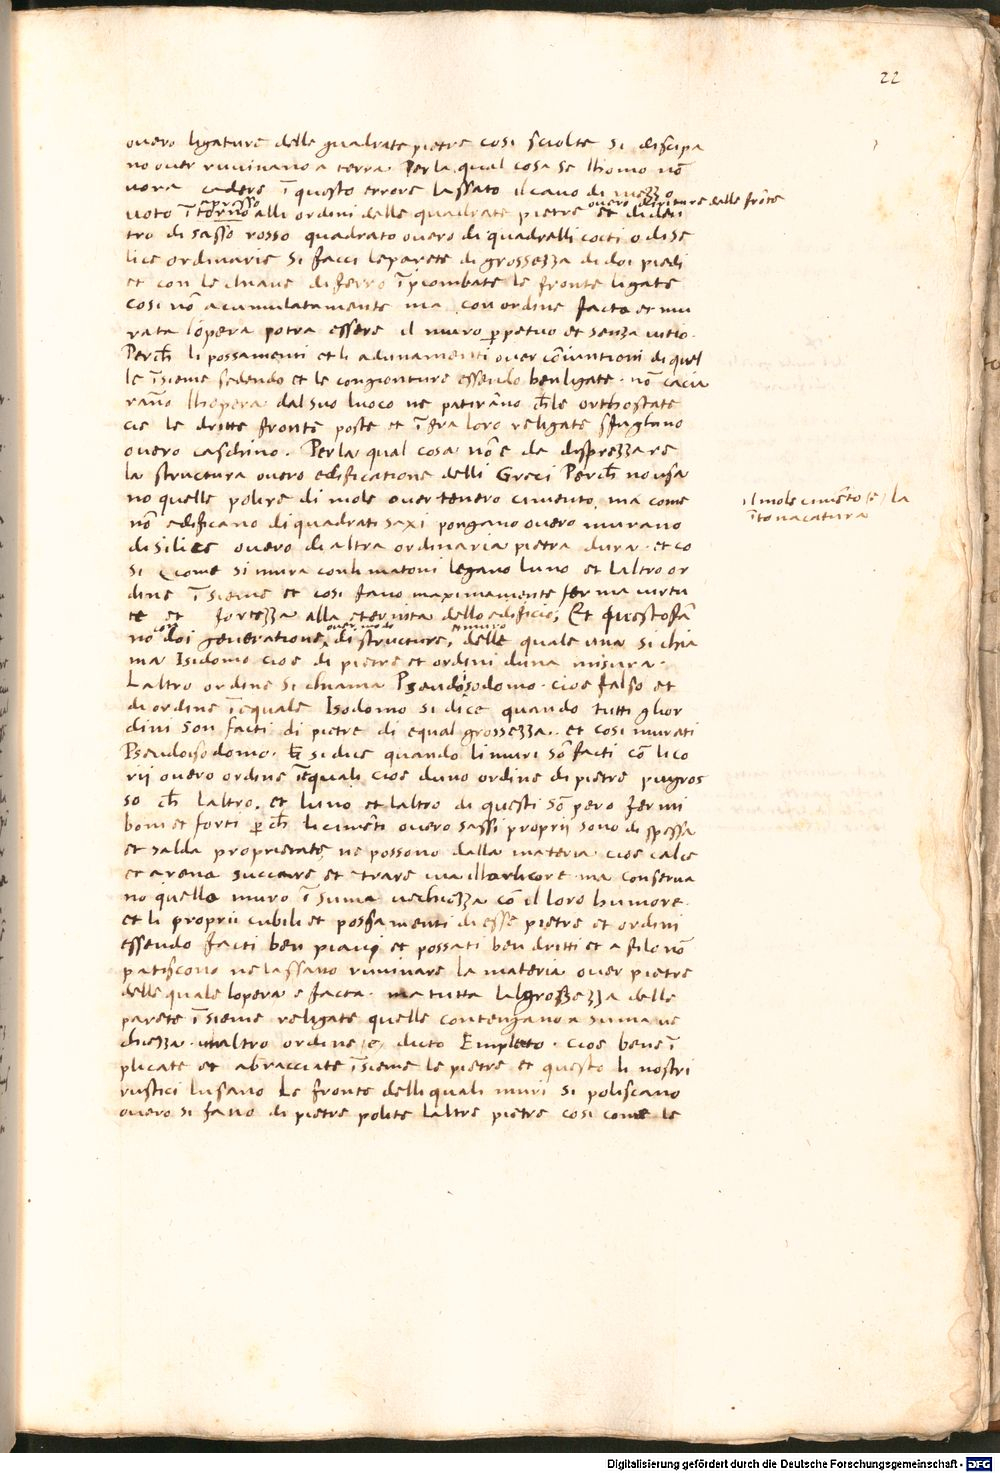 22
overo ligature delle quadrate pietre cosi sciolte si discipa
no over ruvinano a terra. Per la qual cosa se lhomo nō
vora cadere ī questo errore lassato il cavo di mezzo
apresso overo diriture delle frōte
voto ī torno alli ordini delle quadrate pietre et di den
tro di sasso rosso quadrato overo di quadrelli cocti o di se
lice ordinarie si facci le parete di grossezza di doi piedi
et con le chiave di ferro īpiombate le fronte ligate
cosi nō acumulatamente ma con ordine facta et mu
rata lopera potra essere il muro ꝑpetuo et senza vitio.
Perch̄ li possamenti et li adunamenti over cōiuntioni di quel
le īsieme sedendo et le congionture essendo ben ligate. nō cacia
rāno lhopera dal suo luoco ne patirāno ch̄ le orthostate
cie le dritte fronte poste et īfra loro religate sfugano
overo caschino. Per la qual cosa nō e da disprezzare
la structura overo edificatione delli Greci Perch̄ no usa
no quelle polire di mole over tenero cimento, ma come
il mole cimēto (e) la
ītonacatura
nō edificano di quadrati saxi pongano overo murano
di silice overo di altra ordinaria pietra dura. et co
si come si mura con li matoni legano luno et laltro or
dine īsieme et cosi fano maximamente ferma virtu
te et fortezza alla eternita dello edificio, Et questo fā
cose over modo e muro
no doi generatione, di structure, delle quale una si chia
ma Isidomo cioe di pietre et ordini duna misura.
Laltro ordine si chiama Pseudoisodomo. cioe falso et
di ordine īequale Isodomo si dice quando tutti glior
dini son facti di pietre di equal grossezza. et cosi murati
Pseudoisodomo. si dice quando li muri sō facti cō li co
rii overo ordine īequali cioe duno ordine di pietre piu gros
so ch̄ laltro. et luno et laltro di questi sō pero fermi
boni et forti ꝑch̄ li cimēti overo sassi proprii sono di spessa
et salda proprietate, ne possono dalla materia. cioe calce
et arena succiare et trare via il lor licore. ma conserva
no quello muro ī suma vechiezza cō il loro humore.
et li proprii cubili et possamenti di esse pietre et ordini
essendo facti ben piani et possati ben dritti et a filo nō
patiscono ne lassano ruvinare la materia over pietre
delle quale lopera e facta. ma tutta la grossezza delle
parete īsieme religate quelle contengano a suma ve
chiezza. unaltro ordine (e) dicto Emplecto. cioe bene ī
plicate et abracciate īsieme le pietre et questo li nostri
rustici lusano Le fronte delli quali muri si poliscano
overo si fano di pietre polite laltre pietre cosi come le
Digitalisierung gefördert durch die Deutsche Forschungsgemeinschaft - DFG